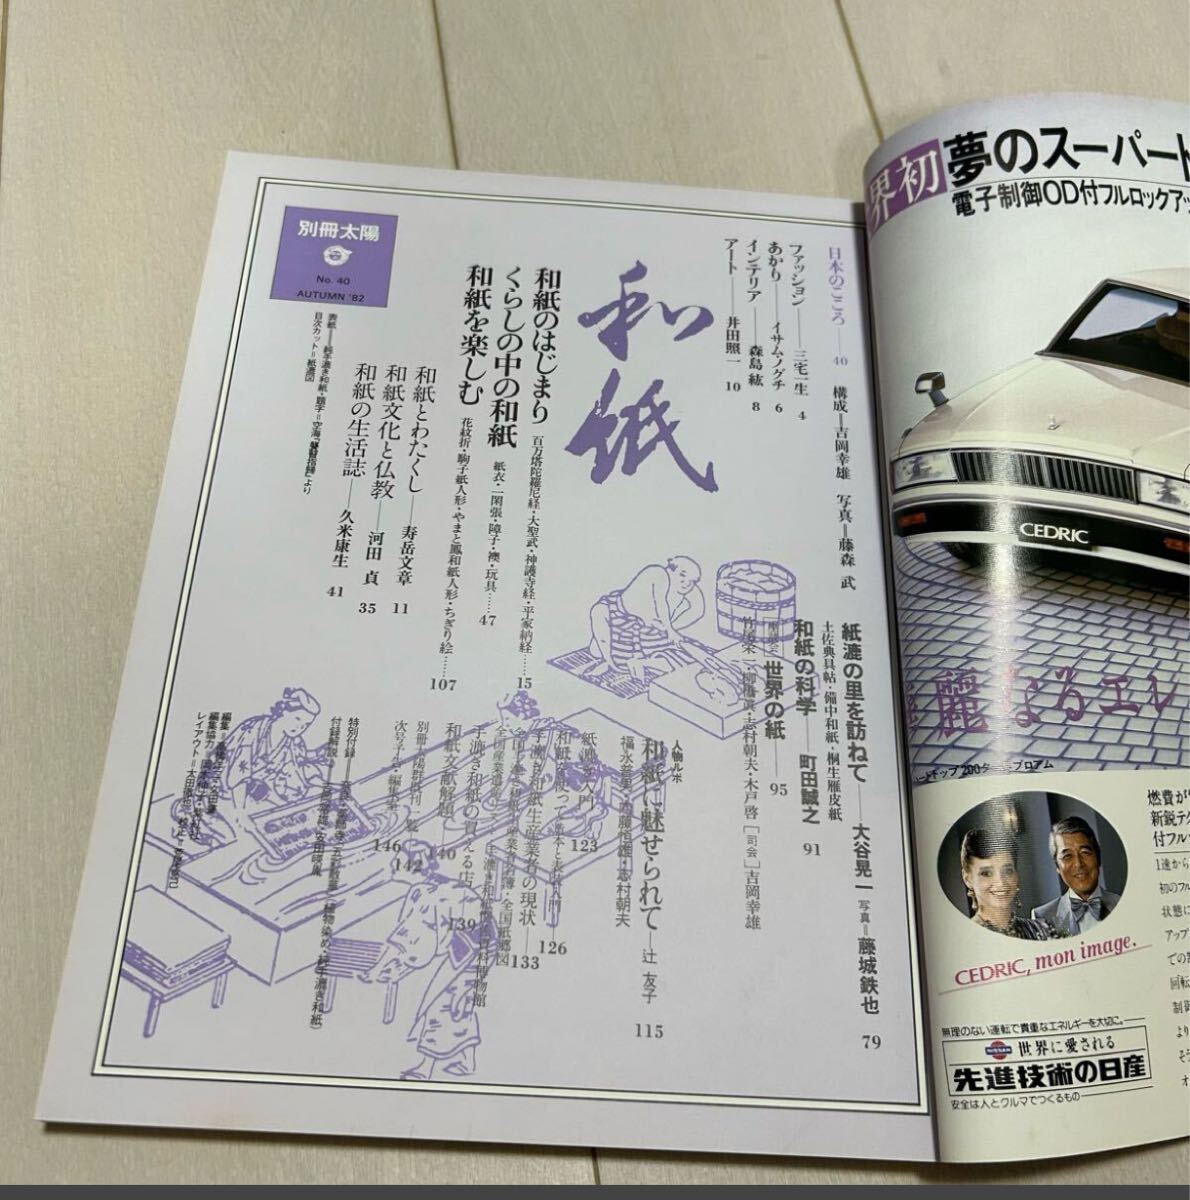 別冊太陽
No. 40
AUTUMN '82
和紙
日本のこころ——40
構成＝吉岡幸雄　写真＝藤森　武
ファッション——三宅一生　4
あかり——イサム・ノグチ　6
インテリア——森島　紘　8
アート——井田照一　10
和紙のはじまり
百万塔陀羅尼経・大聖武・神護寺経・平家納経……15
くらしの中の和紙
紙衣・一閑張・障子・襖・玩具……47
和紙を楽しむ
花紋折・駒子紙人形・やまと凧和紙人形・ちぎり絵……107
和紙とわたくし——寿岳文章　11
和紙文化と仏教——河田　貞　35
和紙の生活誌——久米康生　41
表紙——純手漉き和紙・題字＝空海
目次カット＝紙漉図
紙漉の里を訪ねて——大谷晃一　写真＝藤城鉄也　79
土佐典具帖・備中和紙・桐生雁皮紙
和紙の科学——町田誠之　91
座談会　世界の紙——95
竹尾栄一・柳橋眞・志村朝夫・木戸啓［司会］吉岡幸雄
人物ルポ
和紙に魅せられて——辻　友子　115
紙漉き入門　123
和紙を使って
126
手漉き和紙生産業者の現状——133
手漉き和紙の買える店　139
和紙文献解題　140
142
146
編集
レイアウト＝太田徹也
界初
夢のスーパート
電子制御OD付フルロックアッ
CEDRIC
麗なるエレ
燃費が
新鋭テク
付フル
1速から
初のフル
状態に
アップ
CEDRIC, mon image.
無理のない運転で貴重なエネルギーを大切に。
NISSAN 世界に愛される
先進技術の日産
安全は人とクルマでつくるもの